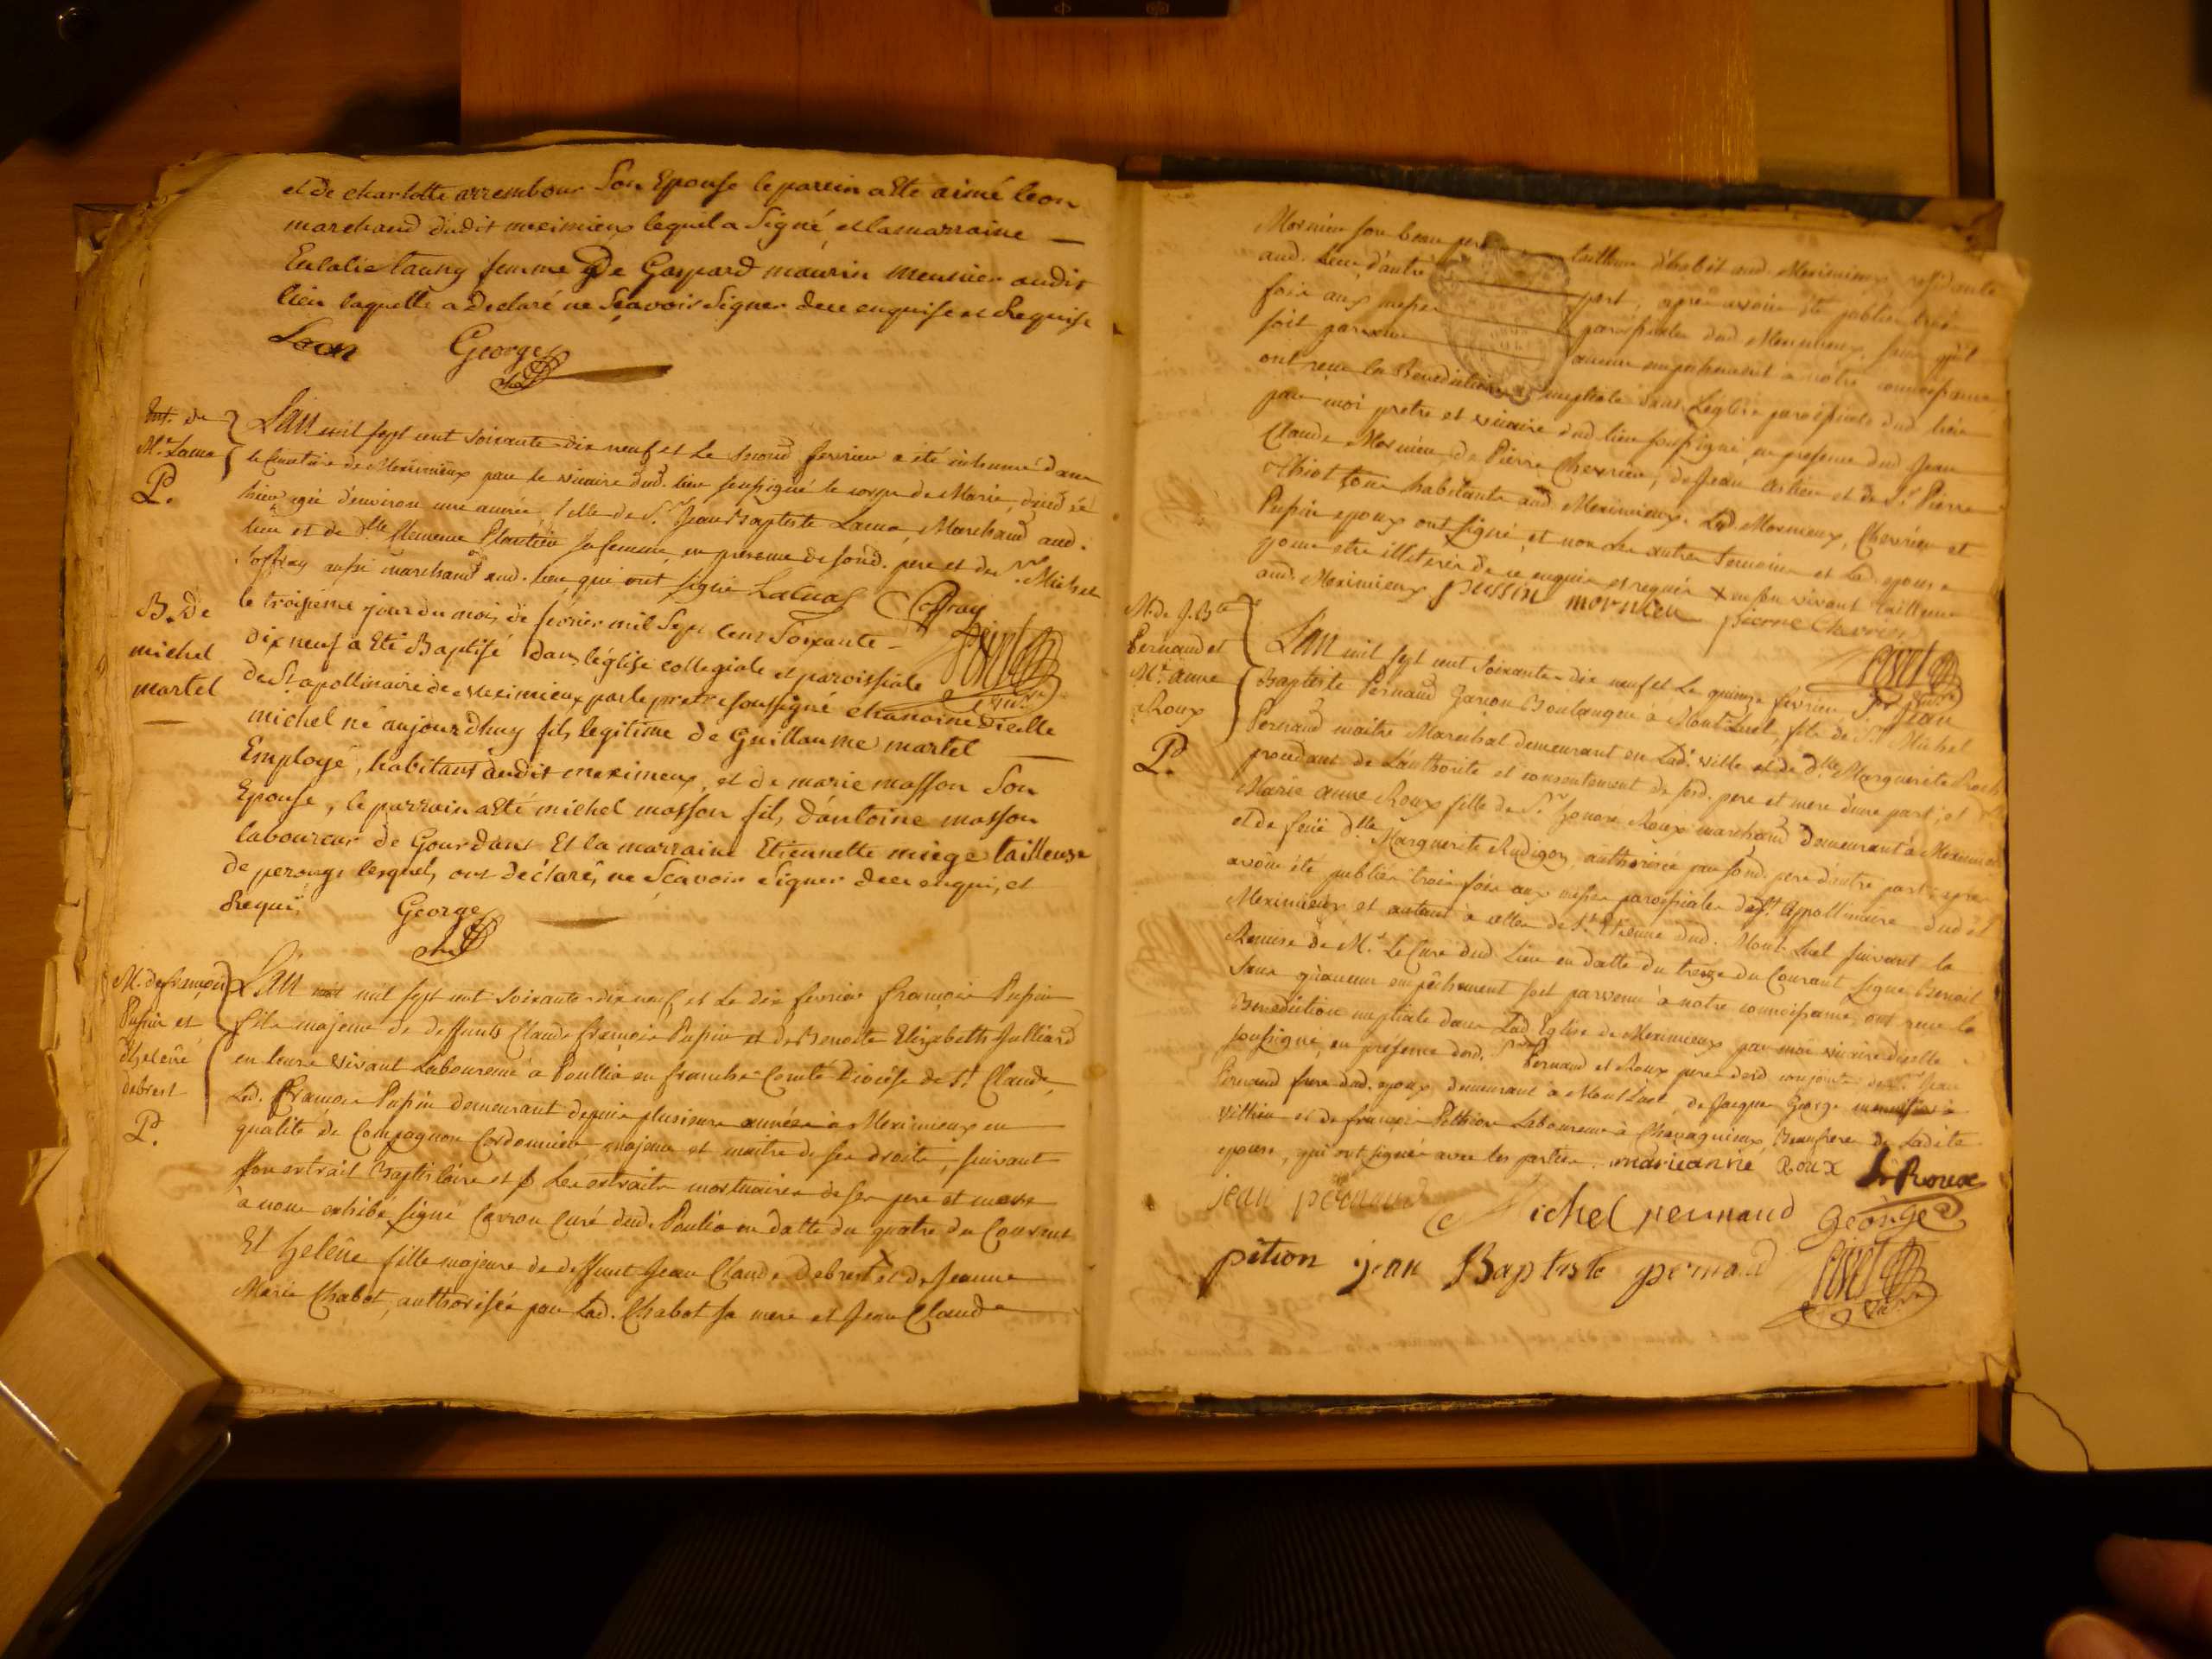 et de charlotte arrembour Son Epouse le parrein a Eté aimé leon
marchand dudit meximieux lequel a Signé, et la marraine —
Eulalie tauny femme De Gaspard maurin meunier audit
lieu laquelle a Declaré ne Sçavoir Signer de ce enquise et Requise
Leon George
ch
Ent. de
Me. Lama
P.
L'an mil sept cent soixante dix neuf et Le second fevrier a été inhumé dans
le Cimetiere de Meximieux par le vicaire dud. lieu soussigné le corps de Marie, décédée
hier agée d'environ une année, fille de Sr. Jean Baptiste Lama, Marchand aud.
lieu et de Dlle Clemence Plantier sa femme, en presence de sond. pere et de Sr. Michel
Coffray aussi marchand aud. lieu qui ont signé Lama Coffray
B. de
michel
martel
le troisiéme jour du mois de février mil Sept Cent Soixante —
dix neuf a Eté Baptisé dans l'église collegiale et paroissiale
de St apollinaire de meximieux par le pretre soussigné chanoine d'icelle
michel né aujourdhuy fils legitime de Guillaume martel —
Employé, habitant audit meximeux, et de marie masson Son
Epouse, le parrain a Eté michel masson fils d'antoine masson
laboureur de Gourdans Et la marraine Etiennette miége tailleuse
de perouge lesquels ont déclaré, ne Scavoir Signer de ce enquis, et
Requis, George
ch
M. de francois
Pupin et
d'heléne
debrest
P.
L'an mil sept cent soixante dix neuf et Le dix fevrier François Pupin
fils majeur de deffunts Claude François Pupin et de Benoite Elizabeth Julliard
en leurs vivant Laboureurs à Pouthia en franche Comté Diocése de St. Claude,
Led. François Pupin demeurant depuis plusieurs années à Meximieux en
qualité de Compagnon Cordonnier, majeur et maitre de ses droits, suivant
son extrait Baptistaire et Les extraits mortuaires de ses pere et mere
à nous exhibé signé Carron Curé dud. Poutia en datte du quatre du Courant
Et heléne fille majeure de deffunt Jean Claude Debrest x et de Jeanne
Marie Chabot, authorisée par Lad. Chabot sa mere et Jean Claude
Mornieu son beau pere tailleur d'habit aud. Meximieux residants
aud. Lieu, d'autre part, après avoir été publiés trois
fois aux messes paroissiales dud. Meximieux, sans qu'il
soit parvenu aucun empechement à notre connoissance,
ont recu la Benediction nuptiale dans L'église paroissiale dud. lieu
par moi pretre et vicaire dud. lieu soussigné, en presence dud. Jean
Claude Mornieu, de Pierre Chevrier, de Jean Astier et de Sr. Pierre
Thiot tous habitants aud. Meximieux. Led. Mornieux, Chevrier et
Pupin epoux ont signé, et non les autres temoins et Lad. epouse
pour etre illiterés de ce enquis et requis x en son vivant tailleur
aud. Meximieux pussin mornieu pierre Chevrier
M. de J. Bte
Pernaud et
Me. anne
Roux
P.
L'an mil sept cent soixante dix neuf et Le quinze fevrier Sr. Jean
Baptiste Pernaud Garcon Boulanger à Mont-Luel, fils de Sr. Michel
Pernaud maitre Marechal demeurant en Lad. ville et de Dlle Marguerite Roch
procedant de L'authorité et consentement de sesd. pere et mere d'une part; et Dlle
Marie anne Roux fille de Sr. honoré Roux marchand demeurant à Meximieux
et de feüe Dlle Marguerite Rudigoz, authorisée par sond. pere d'autre part; apres
avoir été publiés trois fois aux messes paroissiales de St. Appollinaire dud.
Meximieux et autant à celles de St. Etienne dud. Mont-Luel suivant la
Remise de Mr. Le Curé dud. Lieu en datte du treize du Courant signé Benoit
sans qu'aucun empêchement soit parvenu à notre connoissance, ont recu la
Benediction nuptiale dans Lad. Eglise de Meximieux par moi vicaire d'icelle
soussigné, en presence desd. Srs Pernaud et Roux peres desd. conjoints de Sr. Jean
Pernaud frere dud. epoux demeurant à Mont Luel, de Jacques George à
Villieu et de françois Pethion Laboureur à Chavagnieux, Beaufrere de Ladite
epouse, qui ont signés avec les parties. marieanne Roux h Roux
jean pernaud Michel pernaud George
pétion jean Baptiste pernaud